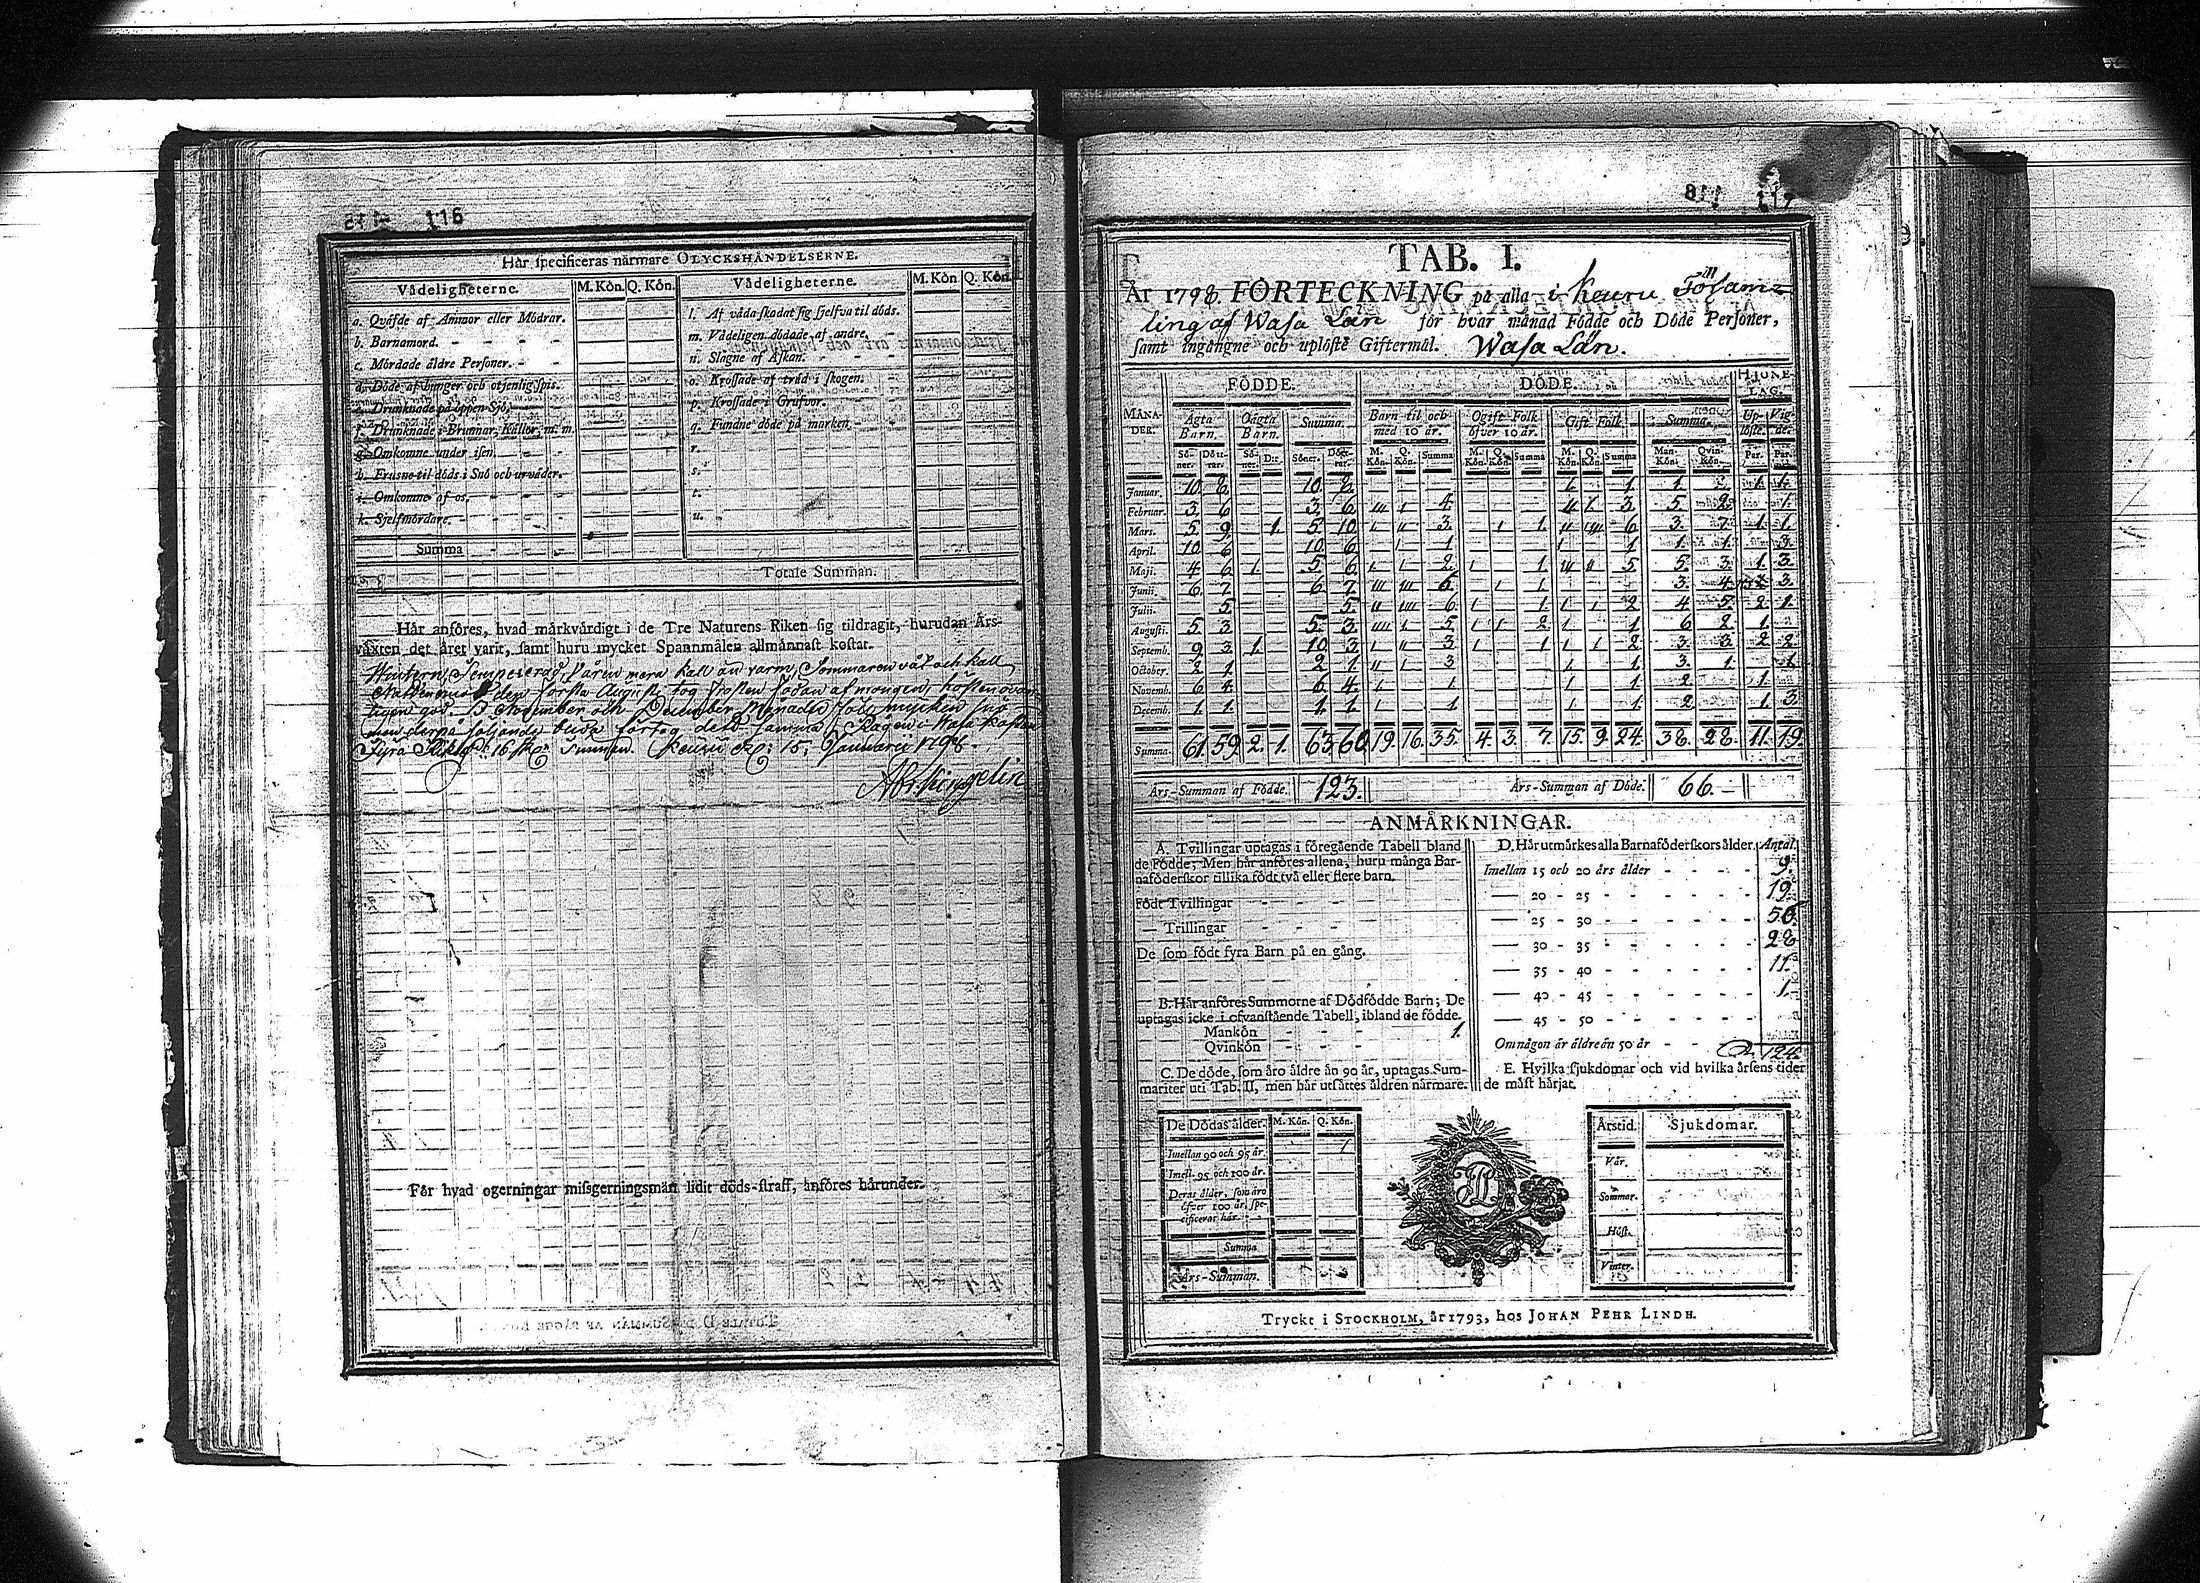 116
Hår specificeras nårmare OLYCKSHÅNDELSERNE.
Vådeligheterne. M. Kön. Q. Kön. Vådeligheterne. M. Kön Q. Kön.
a. Qväfde af Ammor eller Mödrar.
b. Barnamord.
c. Mördade äldre Personer.
d. Döde af hunger och otjenlig spis.
e. Drunknade på öppen Sjö,
f. Drunknade i Brunnar, Källor, m. m.
g. Omkomne under isen.
h. Frusne til döds i Snö och urväder.
i. Omkomne af os,
k. Sjelfmördare.
Summa
l. Af våda skadat sig sjelfva til döds.
m. Vådeligen dödade af andre.
n. Slagne af Åskan.
o. Krossade af träd i skogen.
p. Krossade i Grufvor.
q. Fundne döde på marken.
r.
s.
t.
u.
Totale Summan.
Hår anföres, hvad märkvärdigt i de Tre Naturens Riken sig tildragit, hurudan Års-
växten det året varit, samt huru mycket Spannmålen allmännast kostat.
Wintern Tempererad, våren mera kall än varm, Sommaren våt och kall
den första Augusti tog frosten hösten
god. November och December Månader föll mycken snö
men följande
Fyra Rikd: 16 Keuru d: 15 Januarii 1798.
För hvad ogerningar missgerningsmän lidit döds-straff, anföres hårunder.
TAB. I.
År 1798. FÖRTECKNING på alla i Keuru Försam-
ling af Wasa Län för hvar månad Födde och Döde Personer,
samt ingångne och uplöste Giftermål. Wasa Län.
MÅNA-DER. FÖDDE. DÖDE. HJONE-LAG.
Ägta Barn. Oägta Barn. Summa. Barn til och med 10 år. Ogift Folk öfver 10 år. Gift Folk. Summa. Up-löste. Vig-de.
Sö-ner. Dött-rar. Sö-ner. Dtt. Söner. Dött-rar. M. Kön. Q. Kön. Summa M. Kön. Q. Kön. Summa M. Kön. Q. Kön. Summa Man-Kön. Qvin-Kön. Par. Par.
Januar. 10 8 10 8 1 1 1 2 1 1
Februar. 3 6 3 6 4 3 5 2 1
Mars. 5 9 1 5 10 3 1 1 6 3 7 1 1
April. 10 6 10 6 1 1 1 1 1 3
Maji. 4 6 1 5 6 2 1 5 5 3 1 3
Junii. 6 7 6 7 6 1 1 3 4 3
Julii. 5 5 6 1 1 2 4 5 2 1
Augusti. 5 3 5 3 5 1 1 2 1 6 2 1
Septemb. 9 3 1 10 3 3 1 1 1 2 3 3 2 2
October. 2 1 2 1 3 1 1 3 1 1
Novemb. 6 4 6 4 1 1 1 1 2 1
Decemb. 1 1 1 1 1 1 1 1 2 1 3
Summa. 61 59 2. 1. 63 60 19. 16. 35. 4. 3. 7. 15. 9. 24. 38. 28. 11. 19.
Års-Summan af Födde. 123. Års-Summan af Döde. 66.
ANMÄRKNINGAR.
A. Tvillingar uptagas i föregående Tabell bland
de Födde; Men här anföres allena, huru många Bar-
naföderskor tillika födt två eller flere barn.
Födt Tvillingar
— Trillingar
De som födt fyra Barn på en gång.
B. Här anföres Summorne af Dödfödde Barn; De
uptagas icke i ofvanstående Tabell, ibland de födde.
Mankön 1.
Qvinkön
C. De döde, som äro äldre än 90 år, uptagas Sum-
mariter uti Tab. II, men här utsättes åldren närmare.
D. Här utmärkes alla Barnaföderskors ålder. Antal.
Imellan 15 och 20 års ålder 9.
— 20 - 25 19.
— 25 - 30 56
— 30 - 35 28
— 35 - 40 11.
— 40 - 45 1.
— 45 - 50
Om någon är äldre än 50 år
124.
E. Hvilka sjukdomar och vid hvilka årsens tider
de mäst härjat.
De Dödas ålder. M. Kön. Q. Kön.
Imellan 90 och 95 år. 1
Imell. 95 och 100 år.
Deras ålder, som äro
öfver 100 år, spe-
cificeras här.
Summa
Års-Summan.
Årstid. Sjukdomar.
Vår.
Sommar.
Höst.
Vinter.
Tryckt i STOCKHOLM, år 1793, hos JOHAN PEHR LINDH.